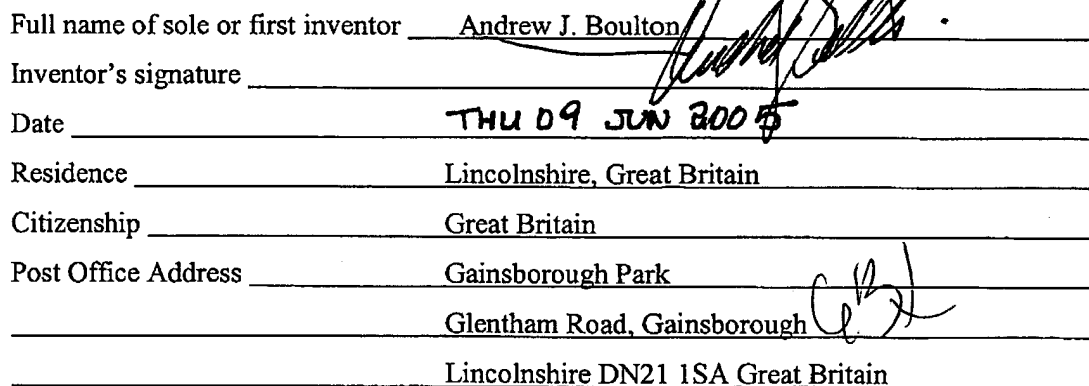 Full name of sole or first inventor Andrew J. Boulton
Inventor's signature
Date THU 09 JUN 2005
Residence Lincolnshire, Great Britain
Citizenship Great Britain
Post Office Address Gainsborough Park
Glentham Road, Gainsborough
Lincolnshire DN21 1SA Great Britain